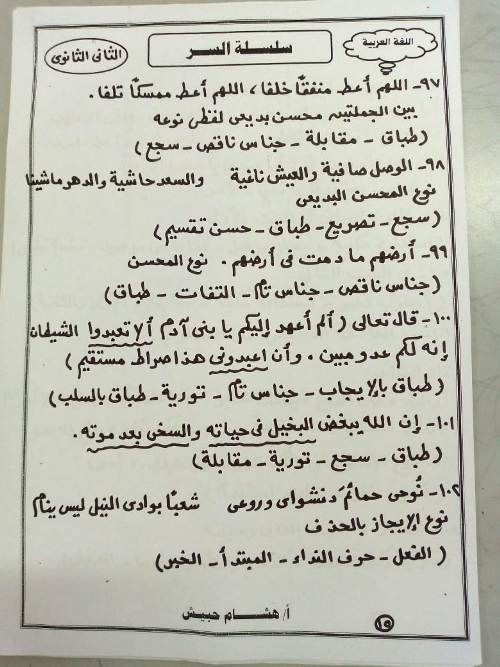 اللغة العربية
سلسلة السر
الثانى الثانوى
٩٧- اللهم أعط منفقًا خلفا، اللهم أعط ممسكًا تلفا.
بين الجملتين محسن بديعى لفظى نوعه
(طباق - مقابلة - جناس ناقص - سجع)
٩٨- الوصل صافية والعيش ناغية والسعد حاشية والدهر ماشينا
نوع المحسن البديعى
(سجع - تصريع - طباق - حسن تقسيم)
٩٩- أرضهم ما دمت فى أرضهم. نوع المحسن
(جناس ناقص - جناس تام - التفات - طباق)
١٠٠- قال تعالى (ألم أعهد إليكم يا بنى آدم ألا تعبدوا الشيطان
إنه لكم عدو مبين. وأن اعبدونى هذا صراط مستقيم)
(طباق بالإيجاب - جناس تام - تورية - طباق بالسلب)
١٠١- إن الله يبغض البخيل فى حياته والسخى بعد موته.
(طباق - سجع - تورية - مقابلة)
١٠٢- نُوحى حمائمَ دنشواى وروعى شعبًا بوادى النيل ليس ينام
نوع الإيجاز بالحذف
(الفعل - حرف النداء - المبتدأ - الخبر)
أ/ هشام حبيش
١٩